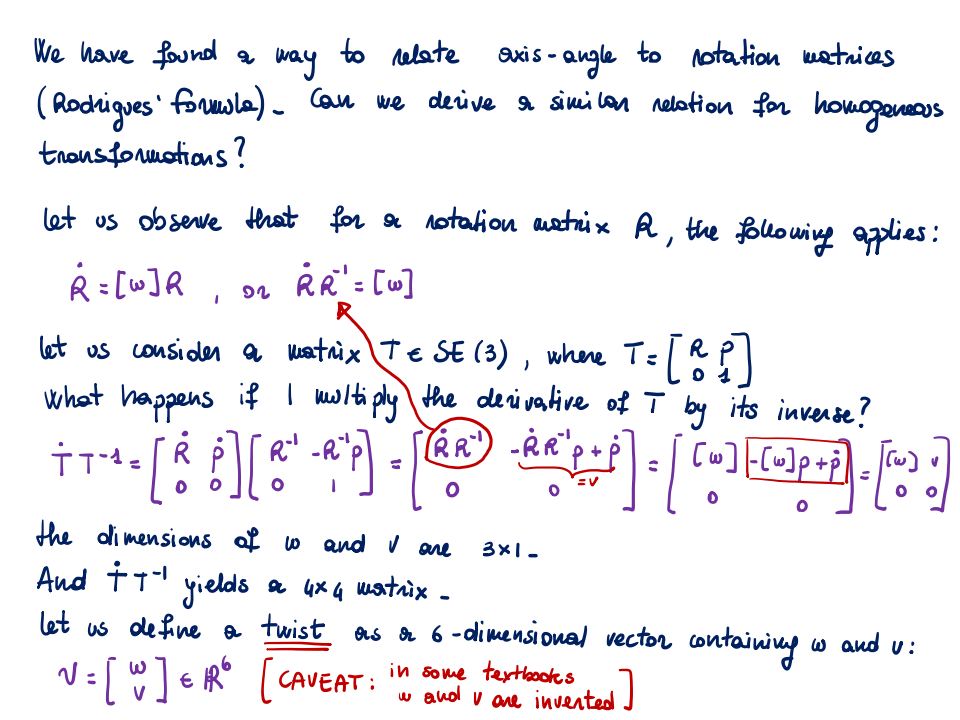 We have found a way to relate axis-angle to rotation matrices
(Rodrigues' formula)_ Can we derive a similar relation for homogeneous
transformations?
Let us observe that for a rotation matrix R, the following applies:
Ṙ = [ω]R , or Ṙ R⁻¹ = [ω]
Let us consider a matrix T ∈ SE(3), where T = [R p; 0 1]
What happens if I multiply the derivative of T by its inverse?
Ṫ T⁻¹ = [Ṙ ṗ; 0 0] [R⁻¹ -R⁻¹p; 0 1] = [ṘR⁻¹ -ṘR⁻¹p + ṗ; 0 0] = [[ω] -[ω]p + ṗ; 0 0] = [[ω] v; 0 0]
= v
the dimensions of ω and v are 3×1_
And Ṫ T⁻¹ yields a 4×4 matrix_
Let us define a twist as a 6-dimensional vector containing ω and v:
V = [ω; v] ∈ ℝ⁶ [CAVEAT: in some textbooks
ω and v are inverted]